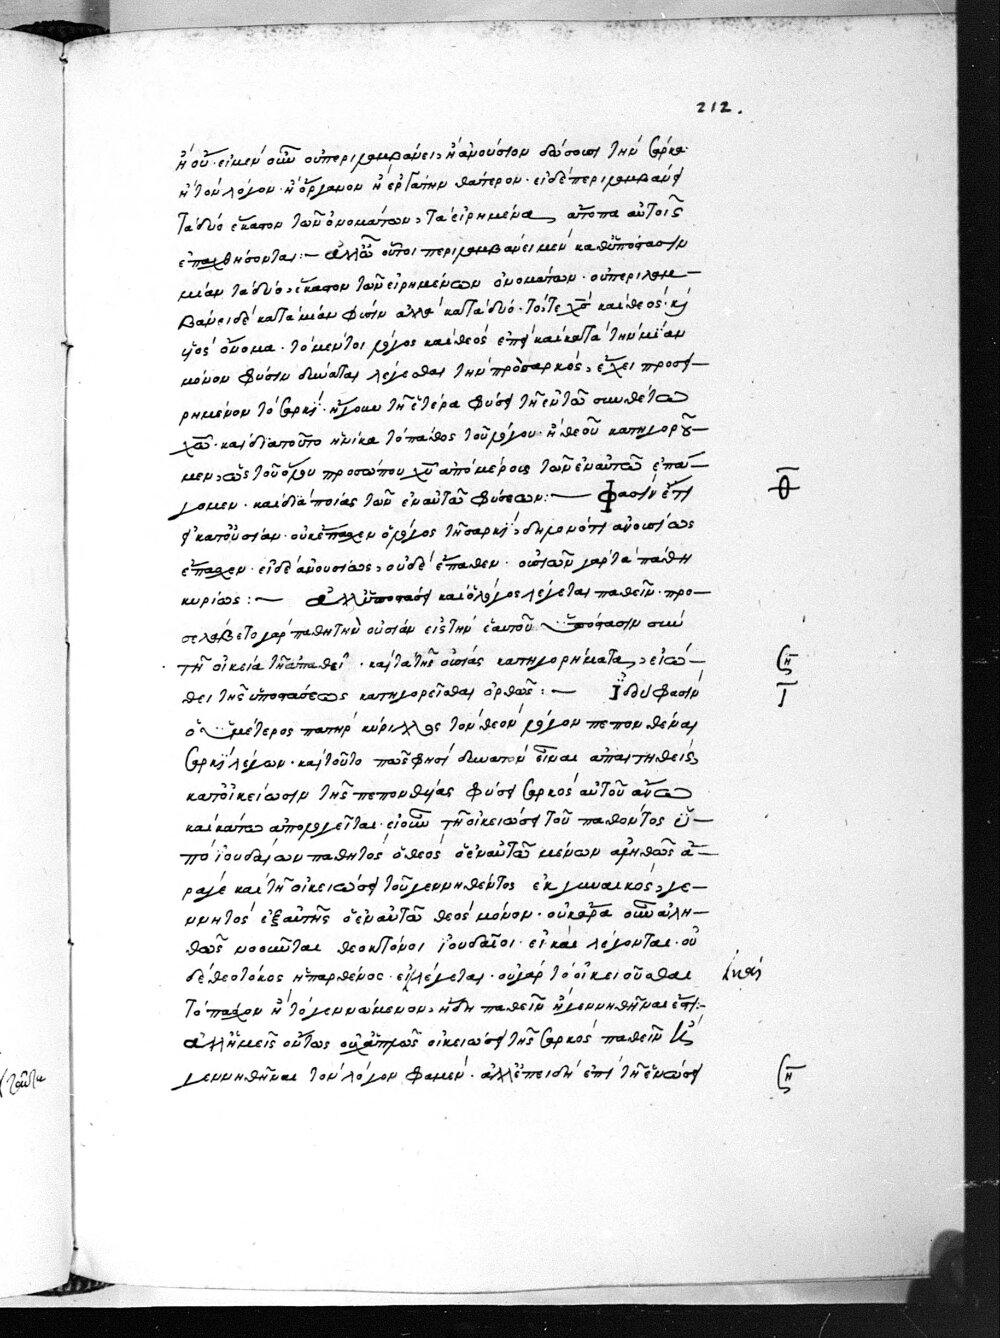 212.
ἢ οὔ· εἰ μὲν οὖν οὐ περιλαμβάνει, ἢ ἀνούσιον δώσουσι τὴν σάρκα·
ἢ τὸν λόγον· ἢ ὄργανον ἢ ἐργάτην θάτερον· εἰ δὲ περιλαμβάνει
τὰ δύο ἕκαστον τῶν ὀνομάτων, τὰ εἰρημένα ἄτοπα αὐτοῖς
ἐπαχθήσονται:— ἀλλ' οὗτοι περιλαμβάνει μὲν καθ' ὑπόστασιν
μίαν τὰ δύο, ἕκαστον τῶν εἰρημένων ὀνομάτων· οὐ περιλαμ—
βάνει δὲ κατὰ μίαν φύσιν ἀλλὰ κατὰ δύο· τό, τε χς καὶ θεός· κỳ
υἱὸς ὄνομα· τὸ μέντοι λόγος καὶ θεὸς ἐπεὶ καὶ κατὰ τὴν μίαν
μόνον φύσιν δύναται λέγεσθαι τὴν πρὸ σαρκός, ἔχει προσῃ—
ρημένον τὸ σαρκὶ· ἤγουν τῆ ἑτέρα φύσει τῆ ἐν τῶ συνθέτω
χῶ· καὶ διὰ τοῦτο ἡνίκα τὸ πάθος τοῦ λόγου· ἢ θεοῦ κατηγοροῦ—
μεν, ὡς τοῦ ὅλου προσώπου χυ ἀπὸ μέρους τῶν ἐν αὐτῶ ἐπά—
γομεν· καὶ διὰ ποίας τῶν ἐν αὐτῶ φύσεων:— Φασὶν ἐπεὶ
θ
εἰ κατ' οὐσίαν· οὐκ ἔπαθεν ὁ λόγος τῆ σαρκὶ, δηλονότι ἀνουσίως
ἔπαθεν· εἰ δὲ ἀνουσίως, οὐδὲ ἔπαθεν· οὐσιῶν γὰρ τὰ πάθη
κυρίως:— ἀλλ' ὑποστάσει καὶ ὁ λόγος λέγεται παθεῖν· προ—
σελάβετο γὰρ παθητὴν οὐσίαν εἰς τὴν ἑαυτοῦ ὑπόστασιν σὺν
τῆ οἰκεία τῆ ἀπαθεῖ· καὶ τὰ τῆς οὐσίας κατηγορήματα, εἰώ—
θει τῆς ὑποστάσεως κατηγορεῖσθαι ὀρθῶς:— Ἰδοὺ φασὶν
Ι
ὁ ἡμέτερος πατὴρ κύριλλος τὸν θεὸν λόγον πεπονθέναι
σαρκὶ λέγων· καὶ τοῦτο πῶς φησὶ δυνατὸν εἶναι ἀπαιτηθεὶς,
κατ' οἰκείωσιν τῆς πεπονθυίας φύσει σαρκὸς αὐτοῦ ἄνω
καὶ κάτω ἀπολογεῖται· εἰ οὖν τῆ οἰκειώσει τοῦ παθόντος ὑ—
πὸ ἰουδαίων παθητὸς ὁ θεὸς ὁ ἐν αὐτῶ μένων ἀληθῶς ἄ—
ρα γε καὶ τῆ οἰκειώσει τοῦ γεννηθέντος ἐκ γυναικὸς, γε—
ννητὸς ἐξ αὐτῆς ὁ ἐν αὐτῶ θεὸς μόνον· οὐκ ἄρα οὖν ἀλη—
θῶς νοοῦνται θεοκτόνοι ἰουδαῖοι· εἰ καὶ λέγονται· οὐ
δὲ θεοτόκος ἡ παρθένος· εἰ λέγεται· οὐ γὰρ τὸ οἰκειοῦσθαι
τὸ παθὸν ἢ τὸ γεννώμενον, ἤδη παθεῖν ἢ γεννηθῆναι ἐστι·
ἀλλ' ἡμεῖς οὕτως οὐχ ἁπλῶς οἰκειώσει τῆς σαρκὸς παθεῖν κỳ
γεννηθῆναι τὸν λόγον φαμέν· ἀλλ' ἐπειδὴ ἐπὶ τῆ ἑνώσει